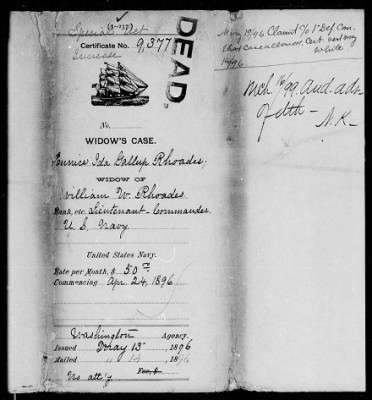 Special Act
Certificate No. 9,377
Increase
DEAD.
No.
WIDOW'S CASE.
Eunice Ida Gallup Rhoades;
WIDOW OF
William W. Rhoades
Rank, etc. Lieutenant-Commander
U.S. Navy
United States Navy.
Rate per Month, $ 50.00
Commencing Apr. 24, 1896
Washington Agency.
Issued May 13 1896
Mailed " 14 1896
No att'y Fee, $
May 19/96 Claimt
White
Mch 16/99. Aud. adv.
of dth -
N.K-